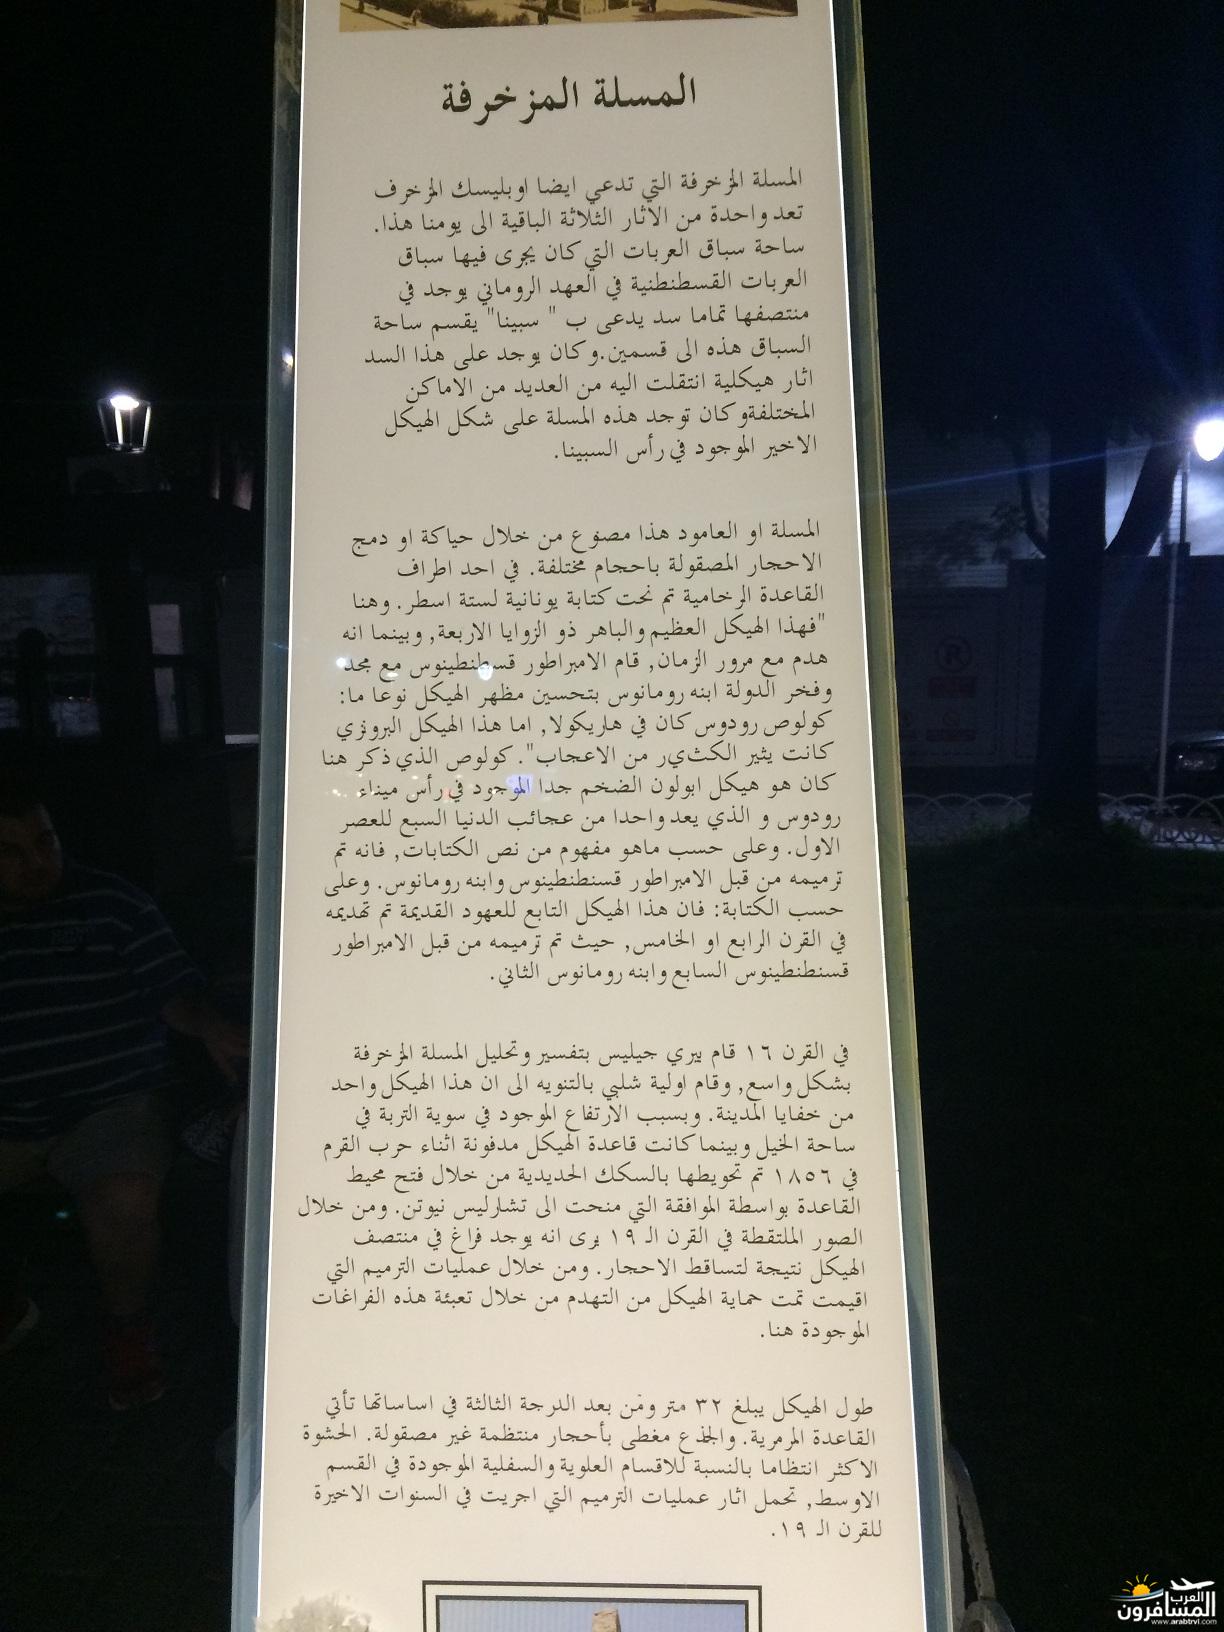 المسلة المزخرفة
المسلة المزخرفة التي تدعي ايضا اوبليسك المزخرف
تعد واحدة من الاثار الثلاثة الباقية الى يومنا هذا.
ساحة سباق العربات التي كان يجرى فيها سباق
العربات القسطنطنية في العهد الروماني يوجد في
منتصفها تماما سد يدعى ب " سبينا" يقسم ساحة
السباق هذه الى قسمين.وكان يوجد على هذا السد
اثار هيكلية انتقلت اليه من العديد من الاماكن
المختلفةوكان توجد هذه المسلة على شكل الهيكل
الاخير الموجود في رأس السبينا.
المسلة او العامود هذا مصنوع من خلال حياكة او دمج
الاحجار المصقولة باحجام مختلفة. في احد اطراف
القاعدة الرخامية تم نحت كتابة يونانية لستة اسطر. وهنا
"فهذا الهيكل العظيم والباهر ذو الزوايا الاربعة, وبينما انه
هدم مع مرور الزمان, قام الامبراطور قسطنطينوس مع مجد
وفخر الدولة ابنه رومانوس بتحسين مظهر الهيكل نوعا ما:
كولوص رودوس كان في هاريكولا, اما هذا الهيكل البرونزي
كانت يثير الكثير من الاعجاب". كولوص الذي ذكر هنا
كان هو هيكل ابولون الضخم جدا الموجود في رأس ميناء
رودوس و الذي يعد واحدا من عجائب الدنيا السبع للعصر
الاول. وعلى حسب ماهو مفهوم من نص الكتابات, فانه تم
ترميمه من قبل الامبراطور قسنطنطينوس وابنه رومانوس. وعلى
حسب الكتابة: فان هذا الهيكل التابع للعهود القديمة تم تهديمه
في القرن الرابع او الخامس, حيث تم ترميمه من قبل الامبراطور
قسنطنطينوس السابع وابنه رومانوس الثاني.
في القرن ١٦ قام بيري جيليس بتفسير وتحليل المسلة المزخرفة
بشكل واسع, وقام اولية شلبي بالتنويه الى ان هذا الهيكل واحد
من خفايا المدينة. وبسبب الارتفاع الموجود في سوية التربة في
ساحة الخيل وبينما كانت قاعدة الهيكل مدفونة اثناء حرب القرم
في ١٨٥٦ تم تحويطها بالسكك الحديدية من خلال فتح محيط
القاعدة بواسطة الموافقة التي منحت الى تشارليس نيوتن. ومن خلال
الصور الملتقطة في القرن الـ ١٩ يرى انه يوجد فراغ في منتصف
الهيكل نتيجة لتساقط الاحجار. ومن خلال عمليات الترميم التي
اقيمت تمت حماية الهيكل من التهدم من خلال تعبئة هذه الفراغات
الموجودة هنا.
طول الهيكل يبلغ ٣٢ متر ومن بعد الدرجة الثالثة في اساساتها تأتي
القاعدة المرمرية. والجذع مغطى بأحجار منتظمة غير مصقولة. الحشوة
الاكثر انتظاما بالنسبة للاقسام العلوية والسفلية الموجودة في القسم
الاوسط, تحمل اثار عمليات الترميم التي اجريت في السنوات الاخيرة
للقرن الـ ١٩.
العرب
المسافرون
www.arabtrvl.com